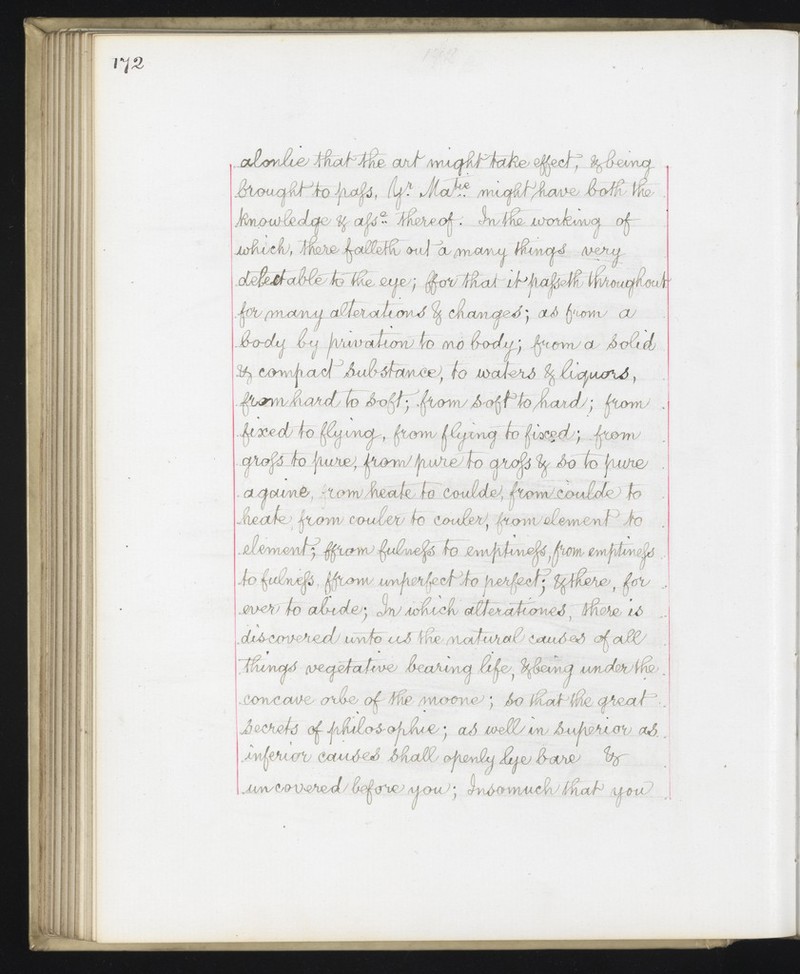 172
alonlie that the art might take effect, & being
brought to paſs, Yr. Matie. might have both the
knowledge & aſsce. thereof. In the working of
which, there falleth out a many things very
delectable to the eye; ffor that it paſseth throughout
for many alterations & changes; as from a
body by privation to no body; from a solid
& compact substance, to waters & liquors,
from hard to soft; from soft to hard; from
fixed to flying, from flying to fixed; from
groſs to pure, from pure to groſs & so to pure
againe, from heate to coulde, from coulde to
heate, from couler to couler, from element to
element; ffrom fulneſs to emptineſs, from emptineſs
to fulneſs. ffrom unperfect to perfect; & there, for
ever to abide; In which alterationes, there is
discovered unto us the natural causes of all
things vegetative bearing life, & being under the
concave orbe of the moone; so that the great
secrets of philosophie; as well in superior as
inferior causes shall openly lye bare &
uncovered before you; Insomuch that you